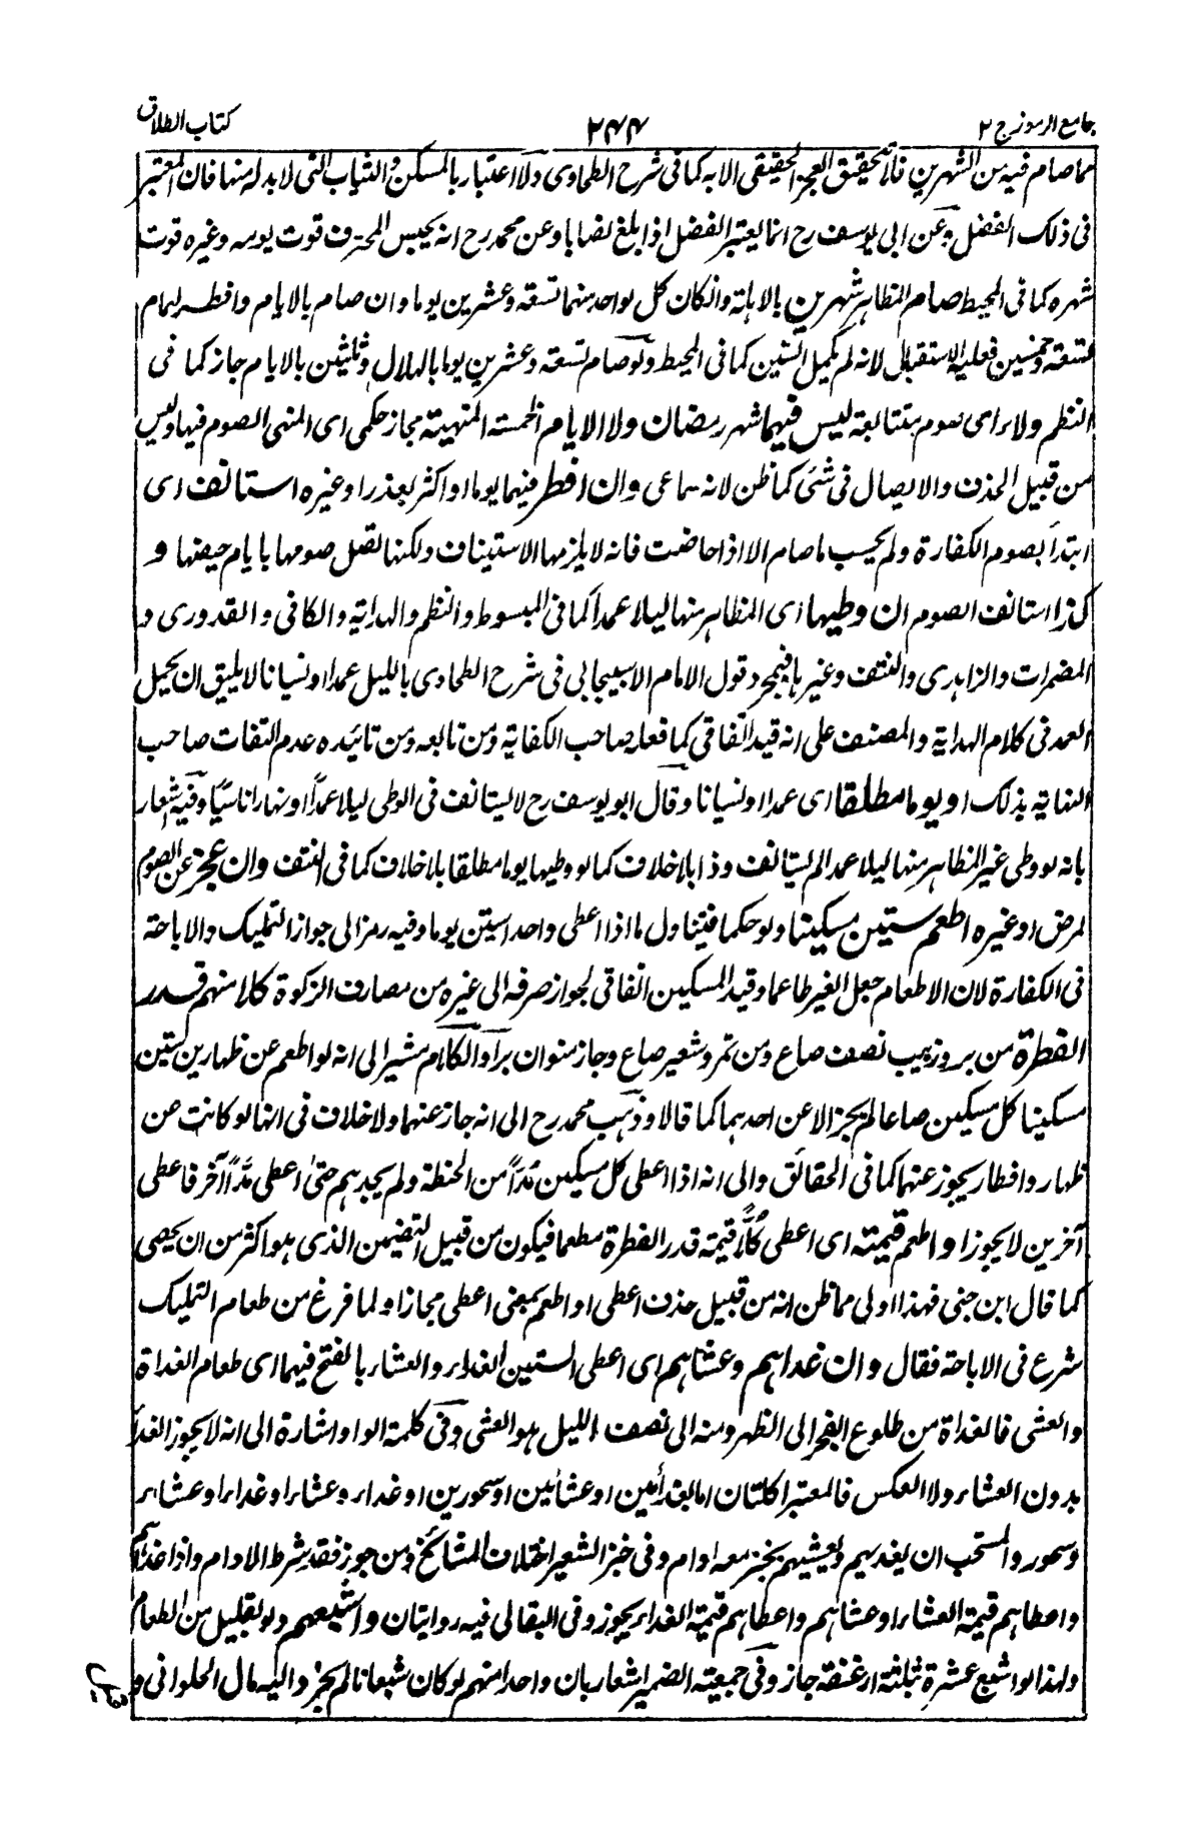 جامع الرموز ج ٢
٢٤٤
كتاب الطلاق
مما صام فيه من الشهرين فلا تحقيق العجز الحقيقى الا به كما فى شرح الطحاوى ولا اعتبار بالمسكن والثياب التى لا بد له منها فان المعتبر
فى ذلك الفضل وعن ابى يوسف رح انما يعتبر الفضل اذا بلغ نصابا وعن محمد رح انه يحبس المحترف قوت يومه وغيره قوت
شهره كما فى المحيط صام المظاهر شهرين بالاهلة وان كان كل واحد منهما تسعة وعشرين يوما وان صام بالايام وافطر لتمام
تسعة وخمسين فعليه الاستقبال لانه لم يكمل الستين كما فى المحيط ولو صام تسعة وعشرين يوما بالهلال وثلثين بالايام جاز كما فى
النظم ولاء اى صوم بمتتابعة ليس فيهما شهر رمضان ولا الايام الخمسة المنهية مجاز حكمى اى المنهى الصوم فيها وليس
من قبيل الحذف والايصال فى شئ كما ظن لانه سماعى وان افطر فيهما يوما او اكثر بعذر او غيره استانف اى
ابتدأ بصوم الكفارة ولم يحسب ما صام الا اذا حاضت فانه لا يلزمها الاستيناف ولكنها تصل صومها بايام حيضها و
كذا استانف الصوم ان وطيها اى المظاهر منها ليلا عمدا كما فى المبسوط والنظم والهداية والكافى والقدورى و
المضمرات والزاهدى والنتف وغيرها فبمجرد قول الامام الاسبيجابى فى شرح الطحاوى بالليل عمدا او نسيانا لا يليق ان يحمل
العمد فى كلام الهداية والمصنف على انه قيد اتفاقى كما فعله صاحب الكفاية ومن تابعه ومن تائيده عدم التفات صاحب
النهاية بذلك او يوما مطلقا اى عمدا او نسيانا وقال ابو يوسف رح لا يستانف فى الوطى ليلا عمدا او نهارا ناسيا وفيه اشعار
بانه لو وطى غير المظاهر منها ليلا عمدا لم يستانف وذا بلا خلاف كما لو وطيها يوما مطلقا بلا خلاف كما فى النتف وان عجز عن الصوم
لمرض او غيره اطعم ستين مسكينا ولو حكما فيتناول ما اذا اعطى واحدا ستين يوما وفيه رمز الى جواز التمليك والاباحة
فى الكفارة لان الاطعام جعل الغير طاعما وقيد المسكين اتفاقى لجواز صرفه الى غيره من مصارف الزكوة كلا منهم قدر
الفطرة من بر وزبيب نصف صاع ومن تمر وشعير صاع وجاز منوان برا والكلام مشير الى انه لو اطعم عن ظهارين ستين
مسكينا كل مسكين صاعا لم يجز الا عن احدهما كما قالا وذهب محمد رح الى انه جاز عنهما ولا خلاف فى انها لو كانت عن
ظهار وافطار يجوز عنهما كما فى الحقائق والى انه اذا اعطى كل مسكين مدا من الحنطة ولم يجدهم حتى اعطى مدا آخر فاعطى
آخرين لا يجوز او اطعم قيمته اى اعطى كلا قيمة قدر الفطرة مطعما فيكون من قبيل التضمين الذى هو اكثر من ان يحصى
كما قال ابن جنى فهذا اولى مما ظن انه من قبيل حذف اعطى او اطعم بمعنى اعطى مجازا ولما فرغ من طعام التمليك
شرع فى الاباحة فقال وان غداهم وعشاهم اى اعطى الستين الغداء والعشاء بالفتح فيهما اى طعام الغداة
والعشى فالغداة من طلوع الفجر الى الظهر ومنه الى نصف الليل هو العشى وفى كلمة الواو اشارة الى انه لا يجوز الغداء
بدون العشاء ولا العكس فالمعتبر اكلتان اما بغدائين او عشائين او سحورين او غداء وعشاء او غداء او عشاء
وسحور والمستحب ان يغديهم ويعشيهم بخبز معه ادام وفى خبز الشعير اختلاف المشائخ ومن جوز فقد شرط الادام واذا غداهم
واعطاهم قيمة العشاء او عشاهم واعطاهم قيمة الغداء يجوز وفى البقالى فيه روايتان واشبعهم ولو بقليل من الطعام
ولهذا لو اشبع عشرة بثلثة ارغفة جاز وفى جمعية الضمير اشعار بان واحدا منهم لو كان شبعانا لم يجز واليه مال الحلوانى و